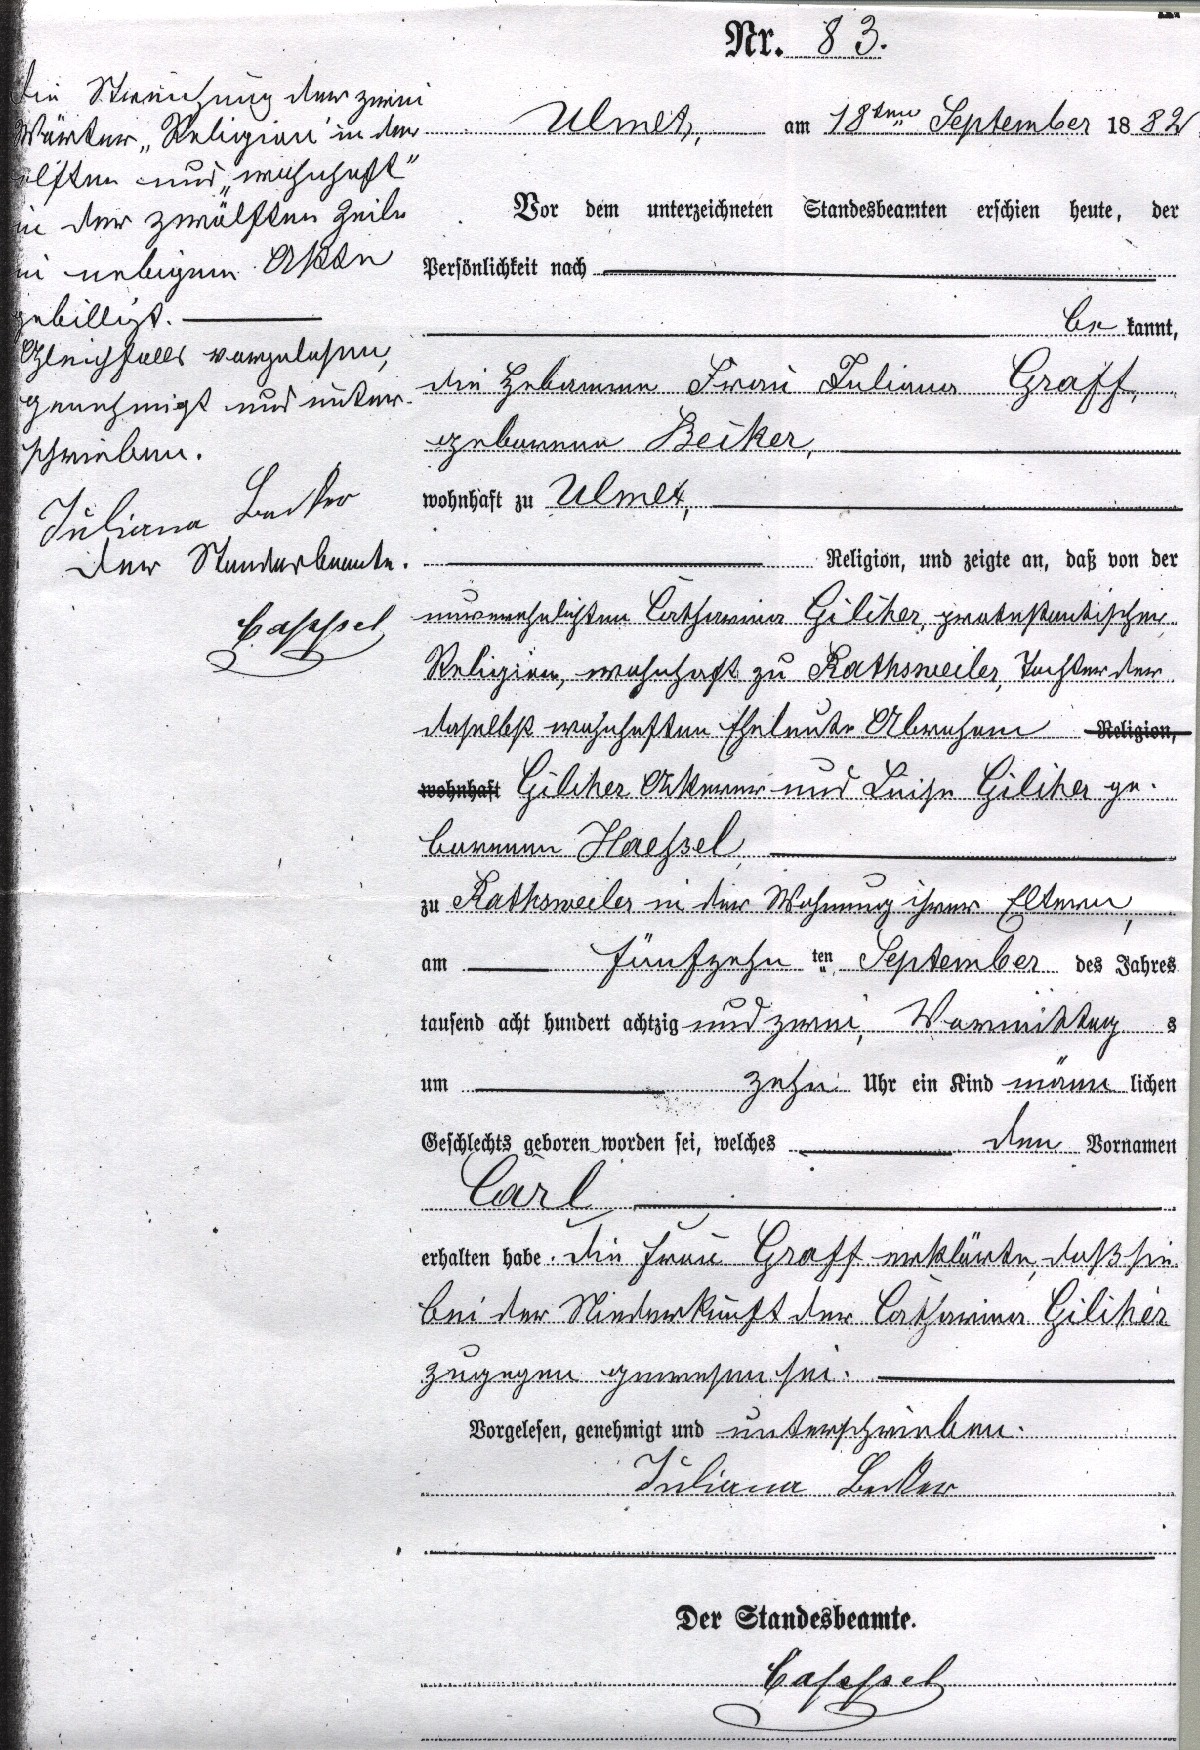 Nr. 83.
Die Streichung der zwei
Wörter „Religion" in der
elften und „wohnhaft"
in der zwölften Zeile
in nebigem Akte
gebilligt.
Gleichfalls vorgelesen,
genehmigt und unter-
schrieben.
Juliana Becker
Der Standesbeamte.
Casssel
Ulmet, am 18ten September 1882
Vor dem unterzeichneten Standesbeamten erschien heute, der
Persönlichkeit nach
be kannt,
die Hebamme Frau Juliana Graff,
geborene Becker,
wohnhaft zu Ulmet,
Religion, und zeigte an, daß von der
unverehelichten Catharina Gilcher, protestantischer
Religion, wohnhaft zu Rathsweiler, Tochter der
daselbst wohnhaften Eheleute Abraham Religion,
wohnhaft Gilcher Ackerer und Luise Gilcher ge-
borenen Haessel,
zu Rathsweiler in der Wohnung ihrer Eltern,
am fünfzehn ten September des Jahres
tausend acht hundert achtzig und zwei, Vormittag s
um zehn Uhr ein Kind männ lichen
Geschlechts geboren worden sei, welches den Vornamen
Carl
erhalten habe. Die Frau Graff erklärte, daß sie
bei der Niederkunft der Catharina Gilcher
zugegen gewesen sei.
Vorgelesen, genehmigt und unterschrieben.
Juliana Becker
Der Standesbeamte.
Casssel